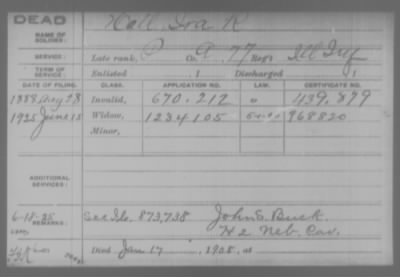 DEAD
NAME OF SOLDIER: Hall Ira R
SERVICE: Late rank, P Co. A, 77 Reg't Ill Inf
TERM OF SERVICE: Enlisted 1 Discharged 1
DATE OF FILING. CLASS. APPLICATION NO. LAW. CERTIFICATE NO.
1888 Aug 28 Invalid, 670.212 439.879
1925 June 15 Widow, 1234105 968820
Minor,
ADDITIONAL SERVICES:
6-18-25 Sec Ilo. 873,738 John S. Buck
REMARKS: H 2 Neb. Cav.
Died Jan 17 1908, at